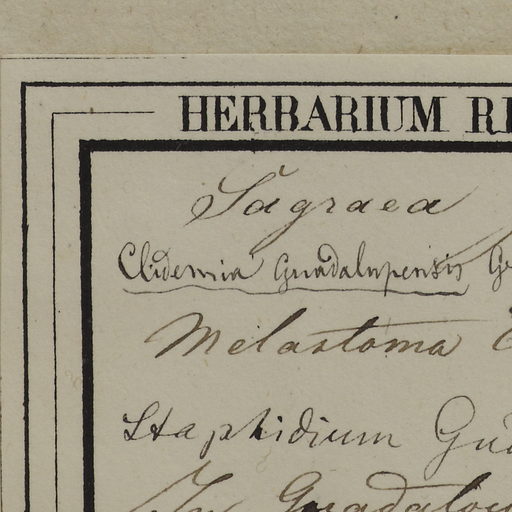 HERBARIUM
Sagraea
Clidemia Guadalupensis
Melastoma
Staphidium
In